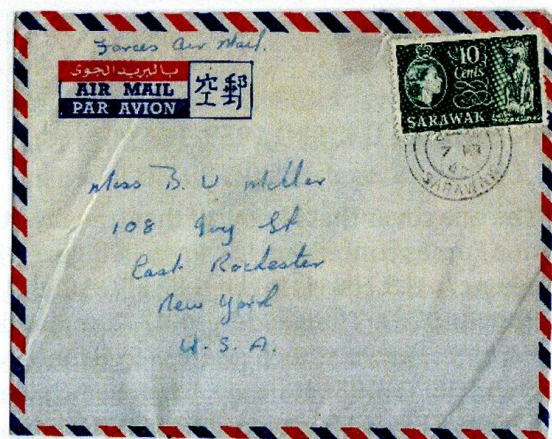 Forces Air Mail.
بالبريد الجوى
AIR MAIL
PAR AVION
空郵
10
Cents
SARAWAK
7
SARAWAK
Miss B. U Miller
108 Ivy St
East Rochester
New York
U.S.A.